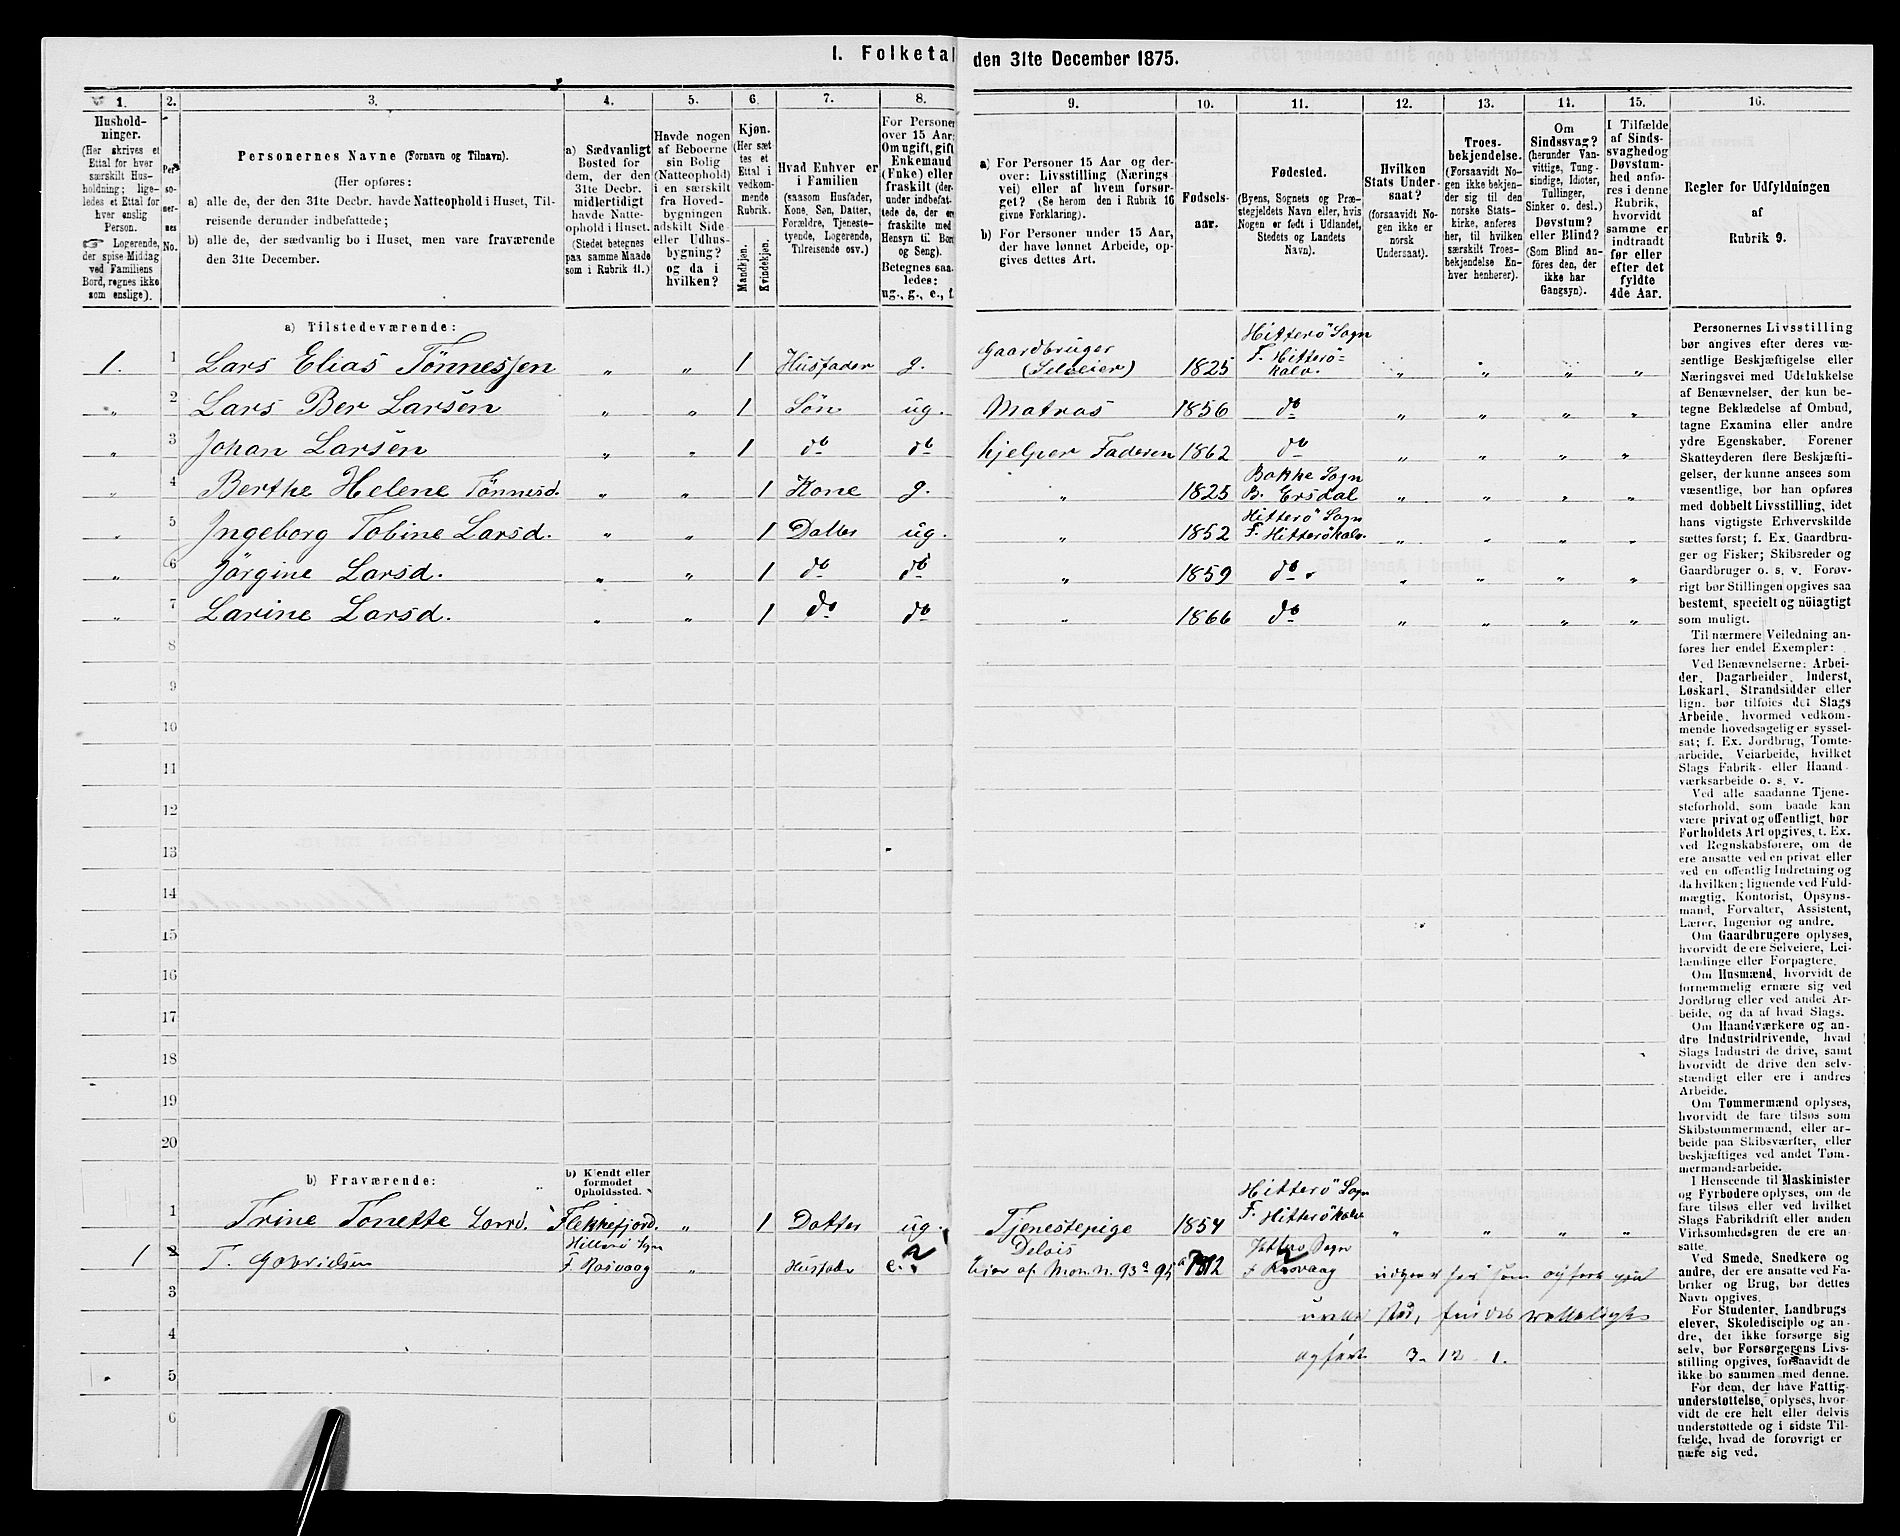 I. Folketal den 31te December 1875.
1. 2. 3. 4. 5. 6. 7. 8. 9. 10. 11. 12. 13. 14. 15. 16.
Hushold-
ninger.
(Her skrives et
Ettal for hver
særskilt Hus-
holdning; lige-
ledes et Ettal for
hver enslig
Person.
☞ Logerende,
der spise Middag
ved Familiens
Bord, regnes ikke
som enslige).
Per-
so-
ner-
nes
No.
Personernes Navne (Fornavn og Tilnavn).
(Her opføres:
a) alle de, der den 31te Decbr. havde Natteophold i Huset, Til-
reisende derunder indbefattede;
b) alle de, der sædvanlig bo i Huset, men vare fraværende
den 31te December.
a) Sædvanligt
Bosted for
dem, der den
31te Decbr.
midlertidigt
havde Natte-
ophold i Huset.
(Stedet betegnes
paa samme Maade
som i Rubrik 11.)
Havde nogen
af Beboerne
sin Bolig
(Natteophold)
i en særskilt
fra Hoved-
bygningen
adskilt Side-
eller Udhus-
bygning?
og da i
hvilken?
Kjøn.
(Her sæt-
tes et
Ettal i
vedkom-
mende
Rubrik.
Mandkjøn.
Kvindekjøn.
Hvad Enhver er
i Familien
(saasom Husfader,
Kone, Søn, Datter,
Forældre, Tjeneste-
tyende, Logerende,
Tilreisende osv.)
For Personer
over 15 Aar:
Om ugift, gift,
Enkemand
(Enke) eller
fraskilt (der-
under indbefat-
tede de, der ere
fraskilte med
Hensyn til Bord
og Seng).
Betegnes saa-
ledes:
ug., g., e., f.
a) For Personer 15 Aar og der-
over: Livsstilling (Nærings-
vei) eller af hvem forsør-
get? (Se herom den i Rubrik 16
givne Forklaring).
b) For Personer under 15 Aar,
der have lønnet Arbeide, op-
gives dettes Art.
Fødsels-
aar.
Fødested.
(Byens, Sognets og Præ-
stegjeldets Navn eller, hvis
Nogen er født i Udlandet,
Stedets og Landets
Navn).
Hvilken
Stats Under-
saat?
(forsaavidt No-
gen ikke er
norsk
Undersaat).
Troes-
bekjendelse.
(Forsaavidt No-
gen ikke bekjen-
der sig til den
norske Stats-
kirke, anføres
her, til hvilken
særskilt Troes-
bekjendelse En-
hver henhører).
Om
Sindssvag?
(herunder Van-
vittige, Tung-
sindige, Idioter,
Tullinger,
Sinker o. desl.)
Døvstum?
eller Blind?
(Som Blind an-
føres den, der
ikke har
Gangsyn).
I Tilfælde
af Sinds-
svaghed og
Døvstum-
hed anfø-
res i denne
Rubrik,
hvorvidt
samme er
indtraadt
før eller
efter det
fyldte
4de Aar.
Regler for Udfyldningen
af
Rubrik 9.
a) Tilstedeværende:
1. 1 Lars Elias Tönnessen „ „ 1 Husfader g. Gaardbruger (Selveier) 1825 Hitterö Sogn F. Hitterökalv. „ „ „ „
„ 2 Lars Ber Larsen „ „ 1 Sön ug. Matros 1856 do „ „ „ „
„ 3 Johan Larsen „ „ 1 do do hjelper Faderen 1862 do „ „ „ „
„ 4 Berthe Helene Tönnesd. „ „ 1 Kone g. „ 1825 Bakke Sogn B. Ersdal „ „ „ „
„ 5 Ingeborg Tobine Larsd. „ „ 1 Datter ug. „ 1852 Hitterö Sogn F. Hitterökalv. „ „ „ „
„ 6 Jörgine Larsd. „ „ 1 do do „ 1859 do „ „ „ „
„ 7 Larine Larsd. „ „ 1 do do „ 1866 do „ „ „ „
8
9
10
11
12
13
14
15
16
17
18
19
20
b) Fraværende:
b) Kjendt eller
formodet
Opholdssted.
1 Trine Tonette Larsd. Flekkefjord. „ 1 Datter ug. Tjenestepige 1854 Hitterö Sogn F. Hitterökalv „ „ „ „
1 2 T. Gabrielsen Hitterö Sogn F. Rasvaag „ Husfader e. 2 Delvis 1812 Hitterö Sogn F Rasvaag
3
4 3 - 12 - 1.
5
6
Personernes Livsstilling
bør angives efter deres væ-
sentlige Beskjæftigelse eller
Næringsvei med Udelukkelse
af Benævnelser, der kun be-
tegne Beklædelse af Ombud,
tagne Examina eller andre
ydre Egenskaber. Forener
Skatteyderen flere Beskjæfti-
gelser, der kunne ansees som
væsentlige, bør han opføres
med dobbelt Livsstilling, idet
hans vigtigste Erhvervskilde
sættes først; f. Ex. Gaardbru-
ger og Fisker; Skibsreder og
Gaardbruger o. s. v. Forøv-
rigt bør Stillingen opgives saa
bestemt, specielt og nöiagtigt
som muligt.
Til nærmere Veiledning an-
føres her endel Exempler:
Ved Benævnelserne: Arbei-
der, Dagarbeider, Inderst,
Løskarl, Strandsidder eller
lign. bør tilføies det Slags
Arbeide, hvormed vedkom-
mende hovedsagelig er syssel-
sat; f. Ex. Jordbrug, Tomte-
arbeide, Veiarbeide, hvilket
Slags Fabrik- eller Haand-
værksarbeide o. s. v.
Ved alle saadanne Tjene-
steforhold, som baade kan
være privat og offentligt, bør
Forholdets Art opgives, t. Ex.
ved Regnskabsførere, om de
ere ansatte ved en privat eller
ved en offentlig Indretning og
da hvilken; lignende ved Fuld-
mægtig, Kontorist, Opsyns-
mand, Forvalter, Assistent,
Lærer, Ingeniør og andre.
Om Gaardbrugere oplyses,
hvorvidt de ere Selveiere, Lei-
lændinge eller Forpagtere.
Om Husmænd, hvorvidt de
fornemmelig ernære sig ved
Jordbrug eller ved andet Ar-
beide, og da af hvad Slags.
Om Haandværkere og an-
dre Industridrivende, hvad
Slags Industri de drive, samt
hvorvidt de drive den selv-
stændigt eller ere i andres
Arbeide.
Om Tømmermænd oplyses,
hvorvidt de fare tilsøs som
Skibstømmermænd, eller ar-
beide paa Skibsværfter, eller
beskjæftiges ved andet Tøm-
mermandsarbeide.
I Henseende til Maskinister
og Fyrbødere oplyses, om de
fare tilsøs eller ved hvilket
Slags Fabrikdrift eller anden
Virksomhedsgren de ere an-
satte.
Ved Smede, Snedkere og
andre, der ere ansatte ved Fa-
briker og Brug, bør dettes
Navn opgives.
For Studenter, Landbrugs-
elever, Skoledisciple og an-
dre, der ikke forsørge sig
selv, bør Forsørgerens Livs-
stilling opgives, forsaavidt de
ikke bo sammen med denne.
For dem, der have Fattig-
understøttelse, oplyses, hvor-
vidt de ere helt eller delvis
understøttede og i sidste Til-
fælde, hvad de forøvrigt er-
nære sig ved.